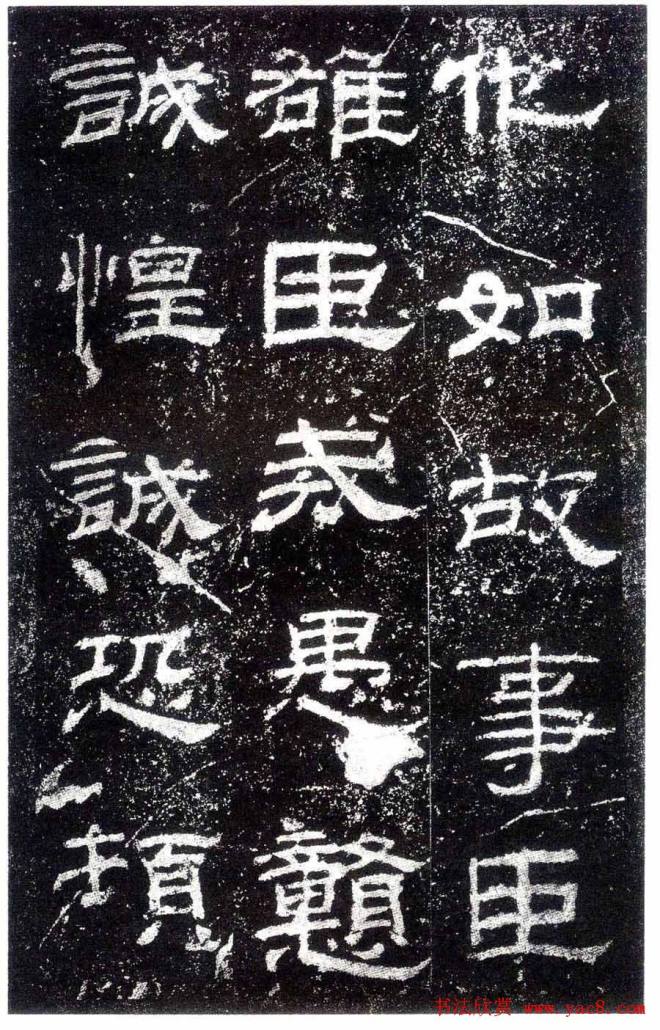 他如故事臣
雄臣戒愚戇
誠惶誠恐頓
书法欣赏 www.yac8.com